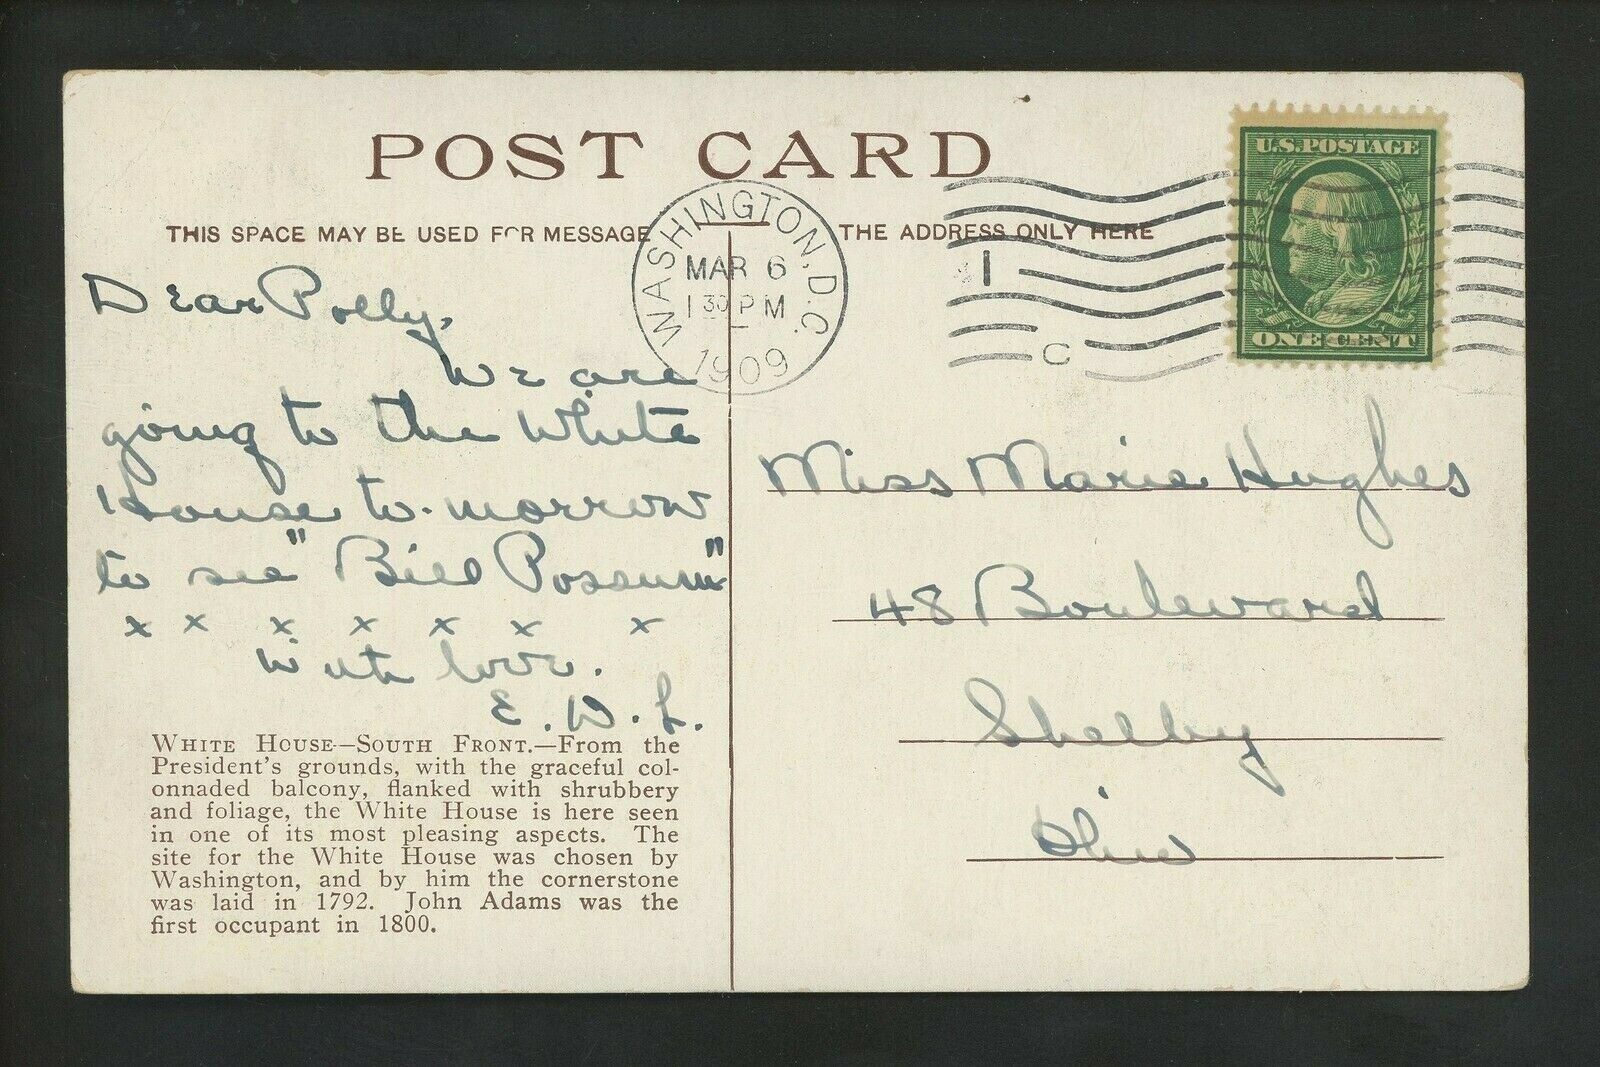 POST CARD
THIS SPACE MAY BE USED FOR MESSAGE
THE ADDRESS ONLY HERE
WASHINGTON, D.C.
MAR 6
1 30 PM
1909
1
C
U.S. POSTAGE
ONE CENT
Dear Polly,
We are
going to the White
House to-morrow
to see "Bill Possum"
x x x x x x x
with love.
E. W. L.
WHITE HOUSE--SOUTH FRONT.—From the
President's grounds, with the graceful col-
onnaded balcony, flanked with shrubbery
and foliage, the White House is here seen
in one of its most pleasing aspects. The
site for the White House was chosen by
Washington, and by him the cornerstone
was laid in 1792. John Adams was the
first occupant in 1800.
Miss Marie Hughes
48 Boulevard
Shelby
Ohio